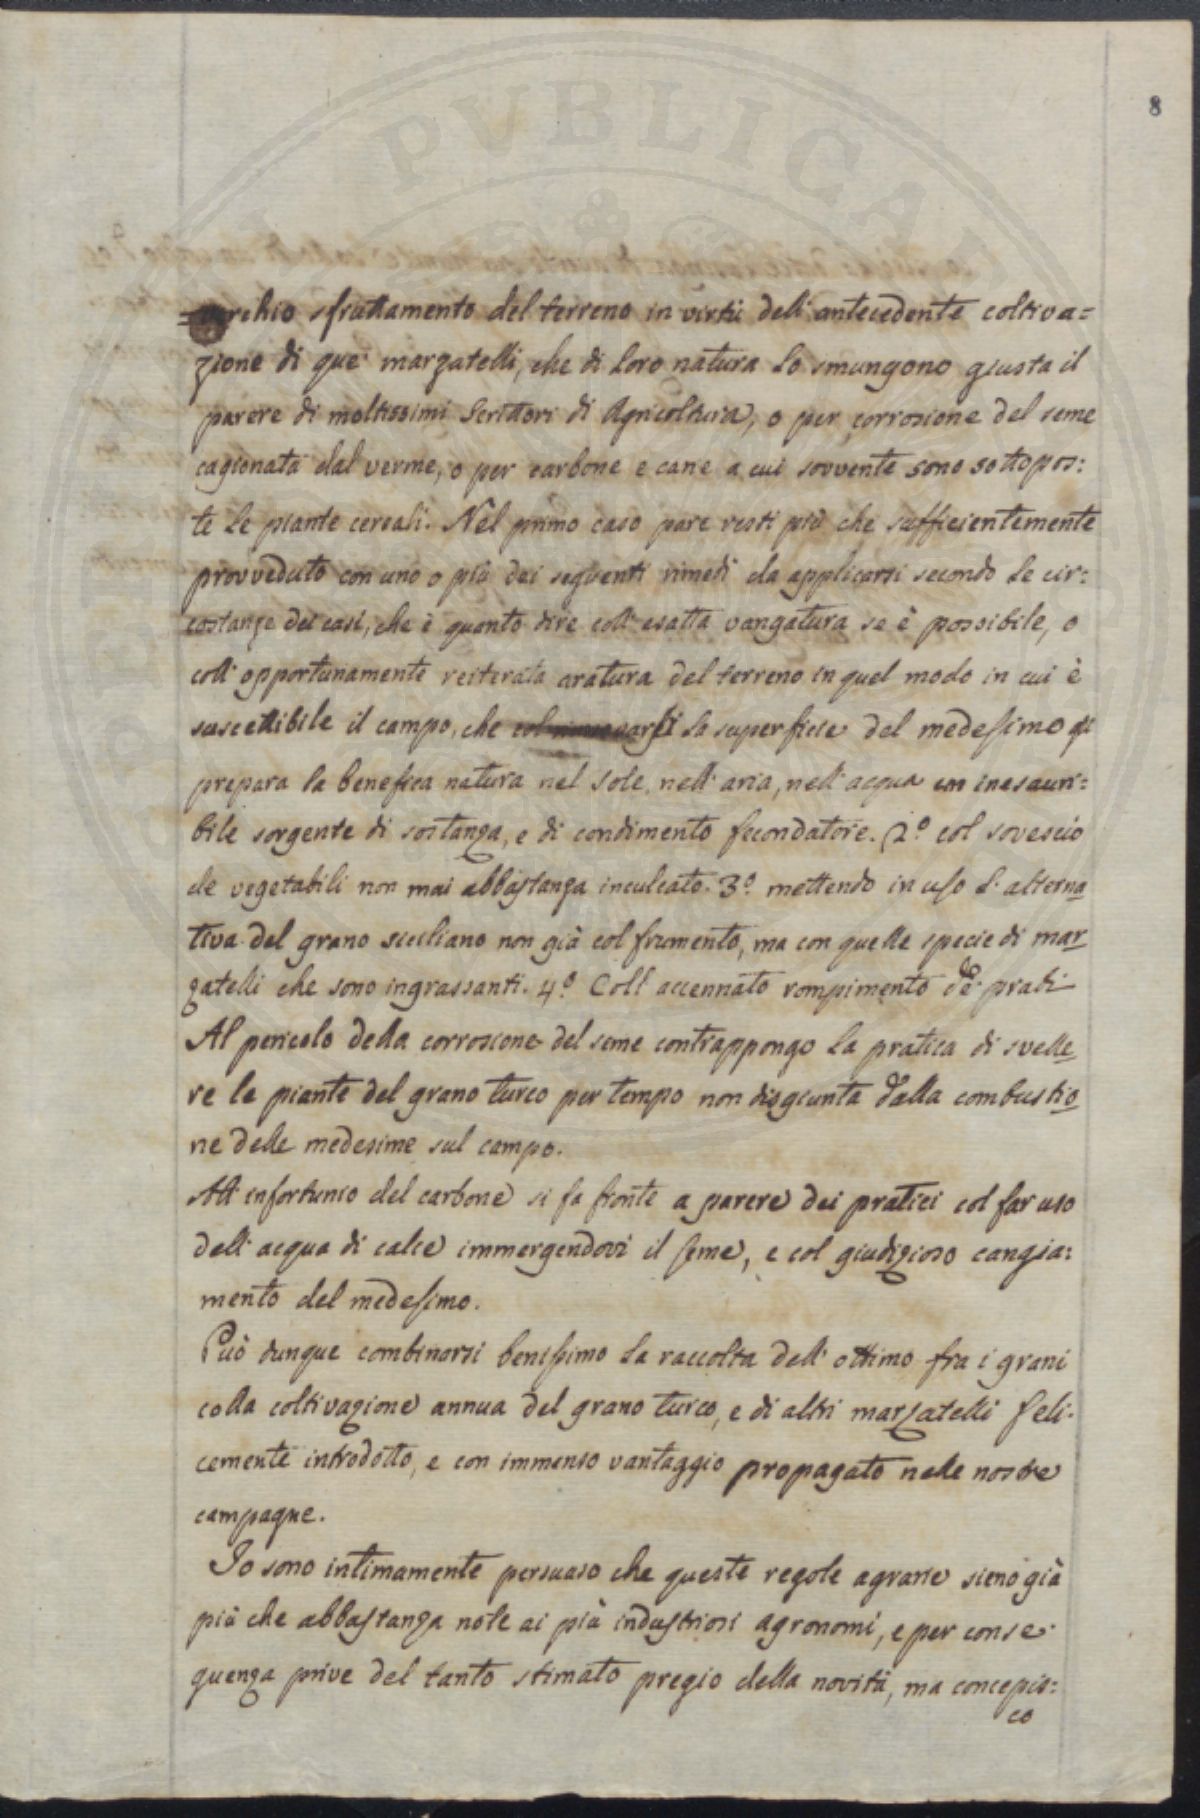 8
=verchio sfruttamento del terreno in virtù dell' antecedente coltiva=
zione di que' marzatelli, che di loro natura lo smungono giusta il
parere di moltissimi Scrittori di Agricoltura, o per corrosione del seme
cagionata dal verme, o per carbone e carie a cui sovvente sono sottopos:
te le piante cereali. Nel primo caso pare resti più che sufficientemente
provveduto con uno o più dei seguenti rimedi da applicarsi secondo le cir:
costanze dei casi, che è quanto dire coll' esatta vangatura se è possibile, o
coll' opportunamente reiterata aratura del terreno in quel modo in cui è
suscettibile il campo, che la superficie del medesimo
prepara la benefica natura nel sole, nell' aria, nell' acqua un inesauri=
bile sorgente di sostanza, e di condimento fecondatore. 2.º col sovescio
de vegetabili non mai abbastanza inculcato. 3.º mettendo in uso l' alterna
tiva del grano siciliano non già col frumento, ma con quelle specie di mar
zatelli che sono ingrassanti. 4.º Coll' accennato rompimento de' prati
Al pericolo della corrosione del seme contrappongo la pratica di svelle
re le piante del grano turco per tempo non disgiunta dalla combustio
ne delle medesime sul campo.
All' infortunio del carbone si fa fronte a parere dei pratici col far uso
dell' acqua di calce immergendovi il seme, e col giudizioso cangia:
mento del medesimo.
Può dunque combinarsi benissimo la raccolta dell' ottimo fra i grani
colla coltivazione annua del grano turco, e di altri marzatelli feli-
cemente introdotto, e con immenso vantaggio propagato nelle nostre
campagne.
Io sono intimamente persuaso che queste regole agrarie sieno già
più che abbastanza note ai più industriosi agronomi, e per conse-
quenza prive del tanto stimato pregio della novità, ma concepis:
co